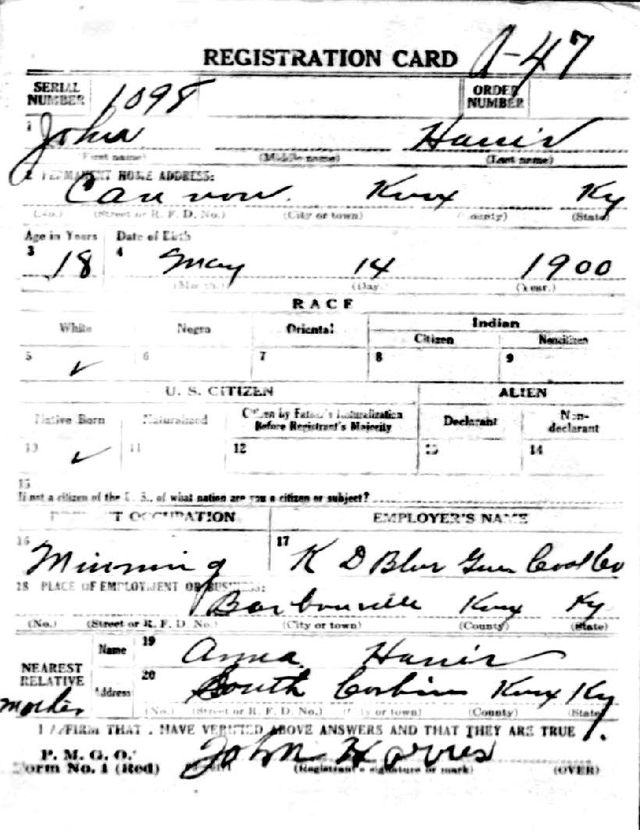 REGISTRATION CARD A-47
SERIAL NUMBER 1098 ORDER NUMBER
1 John Harris
(First name) (Middle name) (Last name)
2 PERMANENT HOME ADDRESS:
Cannon. Knox Ky
(No.) (Street or R. F. D. No.) (City or town) (County) (State)
Age in Years Date of Birth
3 18 4 May 14 1900
(Month.) (Day.) (Year.)
RACE
White Negro Oriental Indian
Citizen Noncitizen
5 ✓ 6 7 8 9
U. S. CITIZEN ALIEN
Native Born Naturalized Citizen by Father's Naturalization Before Registrant's Majority Declarant Non-declarant
10 ✓ 11 12 13 14
15
If not a citizen of the U. S., of what nation are you a citizen or subject?
PRESENT OCCUPATION EMPLOYER'S NAME
16 Minning 17 K D Blue Gem Coal Co
18 PLACE OF EMPLOYMENT OR BUSINESS:
Barbourville Knox Ky
(No.) (Street or R. F. D. No.) (City or town) (County) (State)
NEAREST RELATIVE Name 19 Anna Harris
Address 20 South Corbin Knox Ky
mother (No.) (Street or R. F. D. No.) (City or town) (County) (State)
I AFFIRM THAT I HAVE VERIFIED ABOVE ANSWERS AND THAT THEY ARE TRUE
P. M. G. O.
Form No. 1 (Red) John Horres
(Registrant's signature or mark) (OVER)